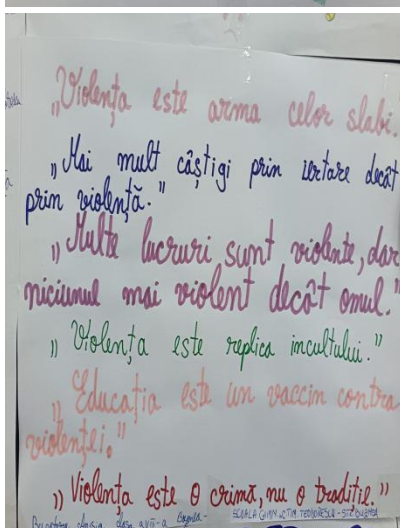 „Violența este arma celor slabi.
„Mai mult câștigi prin iertare decât
prin violență."
„Multe lucruri sunt violente, dar
niciunul mai violent decât omul."
„Violența este replica incultului."
„Educația este un vaccin contra
violenței."
„Violența este o crimă, nu o tradiție."
clasa a VIII-a